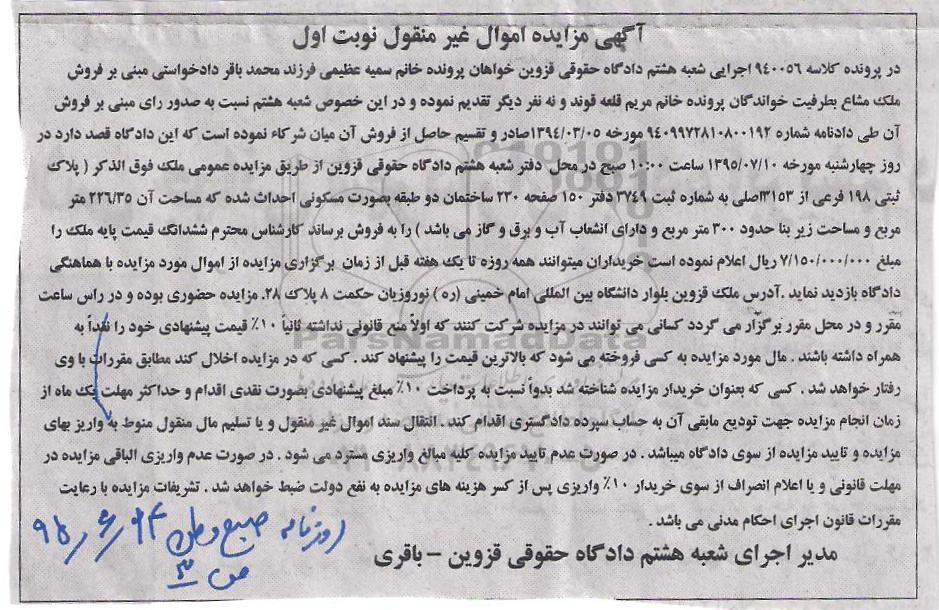 آگهی مزایده اموال غیر منقول نوبت اول
در پرونده کلاسه ۹۴۰۰۵۶ اجرایی شعبه هشتم دادگاه حقوقی قزوین خواهان پرونده خانم سمیه عظیمی فرزند محمد باقر دادخواستی مبنی بر فروش
ملک مشاع بطرفیت خواندگان پرونده خانم مریم قلعه قوند و نه نفر دیگر تقدیم نموده و در این خصوص شعبه هشتم نسبت به صدور رای مبنی بر فروش
آن طی دادنامه شماره ۹۴۰۹۹۷۲۸۱۰۸۰۰۱۹۲ مورخه ۱۳۹۴/۰۳/۰۵صادر و تقسیم حاصل از فروش آن میان شرکاء نموده است که این دادگاه قصد دارد در
روز چهارشنبه مورخه ۱۳۹۵/۰۷/۱۰ ساعت ۱۰:۰۰ صبح در محل دفتر شعبه هشتم دادگاه حقوقی قزوین از طریق مزایده عمومی ملک فوق الذکر ( پلاک
ثبتی ۱۹۸ فرعی از ۱۳۱۵۳صلی به شماره ثبت ۳۷۴۹ دفتر ۱۵۰ صفحه ۲۳۰ ساختمان دو طبقه بصورت مسکونی احداث شده که مساحت آن ۲۲۶/۳۵ متر
مربع و مساحت زیر بنا حدود ۳۰۰ متر مربع و دارای انشعاب آب و برق و گاز می باشد ) را به فروش برساند کارشناس محترم ششدانگ قیمت پایه ملک را
مبلغ ۷/۱۵۰/۰۰۰/۰۰۰ ریال اعلام نموده است خریداران میتوانند همه روزه تا یک هفته قبل از زمان برگزاری مزایده از اموال مورد مزایده با هماهنگی
دادگاه بازدید نماید .آدرس ملک قزوین بلوار دانشگاه بین المللی امام خمینی (ره ) نوروزیان حکمت ۸ پلاک ۲۸. مزایده حضوری بوده و در راس ساعت
مقرر و در محل مقرر برگزار می گردد کسانی می توانند در مزایده شرکت کنند که اولاً منع قانونی نداشته ثانیاً ۱۰٪ قیمت پیشنهادی خود را نقداً به
همراه داشته باشند . مال مورد مزایده به کسی فروخته می شود که بالاترین قیمت را پیشنهاد کند . کسی که در مزایده اخلال کند مطابق مقررات با وی
رفتار خواهد شد . کسی که بعنوان خریدار مزایده شناخته شد بدواً نسبت به پرداخت ۱۰٪ مبلغ پیشنهادی بصورت نقدی اقدام و حداکثر مهلت یک ماه از
زمان انجام مزایده جهت تودیع مابقی آن به حساب سپرده دادگستری اقدام کند . انتقال سند اموال غیر منقول و یا تسلیم مال منقول منوط به واریز بهای
مزایده و تایید مزایده از سوی دادگاه میباشد . در صورت عدم تایید مزایده کلیه مبالغ واریزی مسترد می شود . در صورت عدم واریزی الباقی مزایده در
مهلت قانونی و یا اعلام انصراف از سوی خریدار ۱۰٪ واریزی پس از کسر هزینه های مزایده به نفع دولت ضبط خواهد شد . تشریفات مزایده با رعایت
مقررات قانون اجرای احکام مدنی می باشد .
مدیر اجرای شعبه هشتم دادگاه حقوقی قزوین – باقری
روزنامه صبح وطن ۹۵/۶/۲۴
ص ۳
ParsNamadData